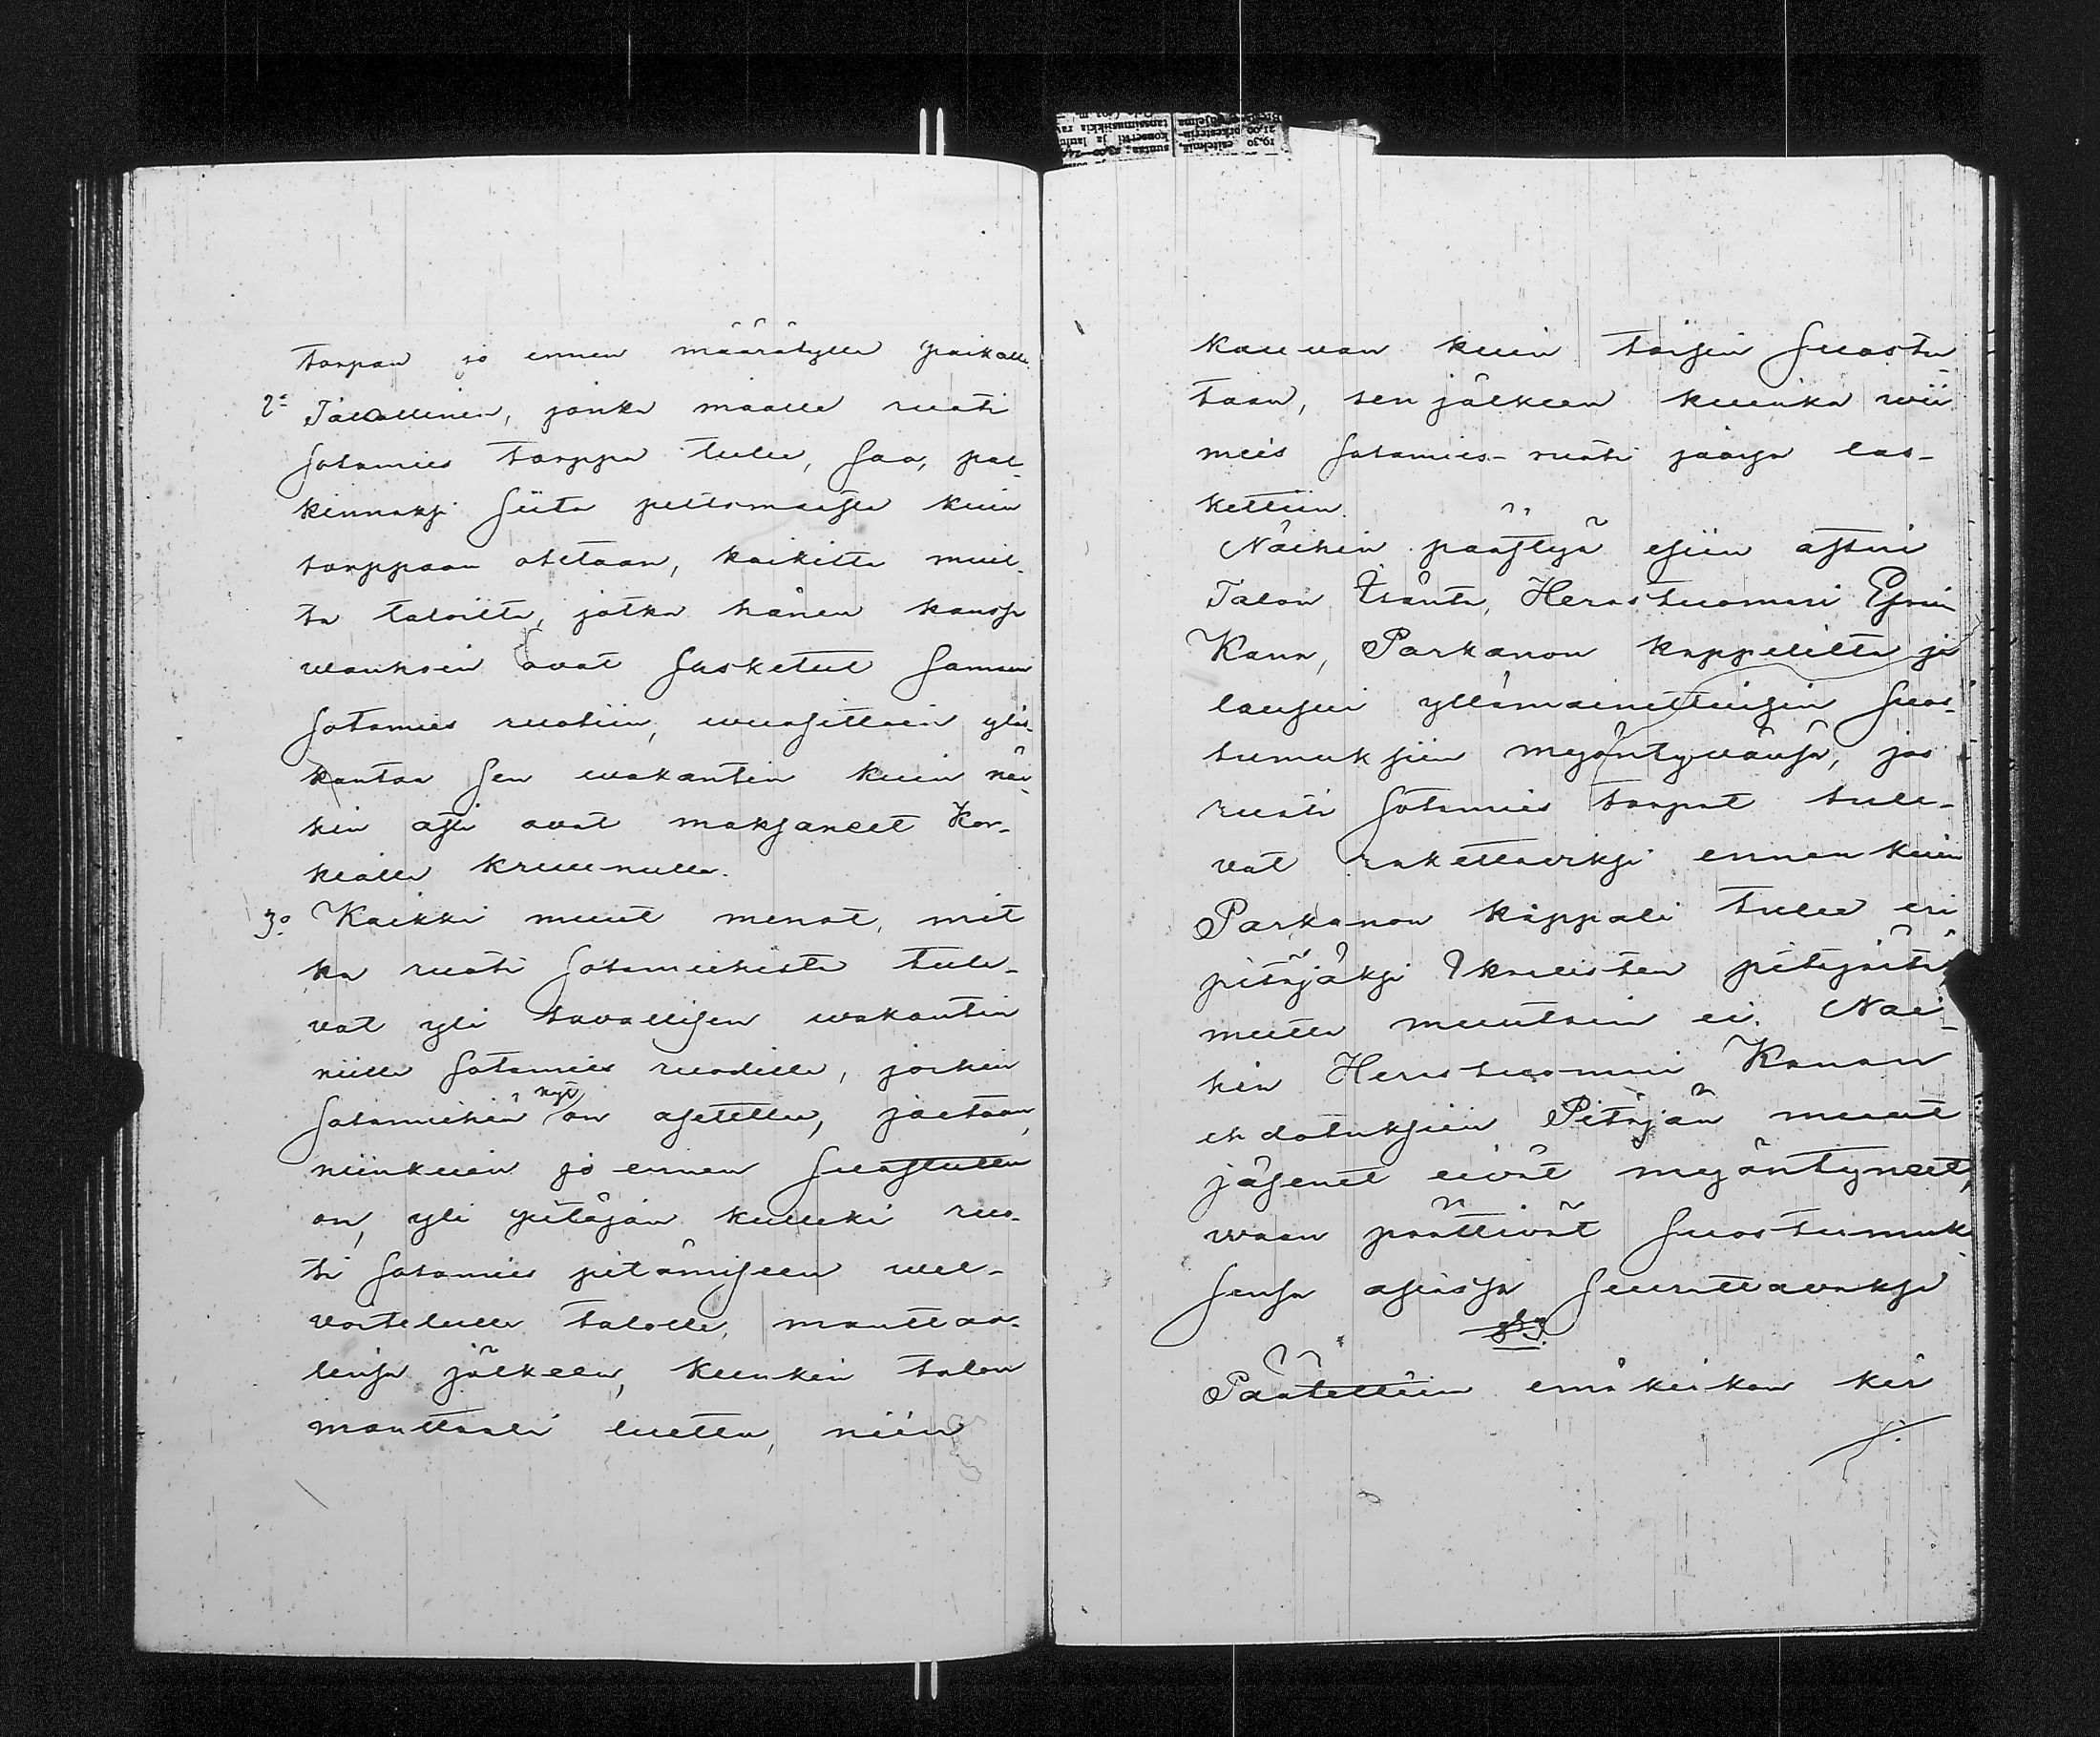 torpan jo ennen määrätylle paikalle.
2:o Talollinen, jonka maalle ruoti
sotamies torppa tulee, saa, pal-
kinnaksi siitä peltomaasta kuin
torppaan otetaan, kaikilta muil-
ta taloilta, jotka hänen kanssa
wanhoin ovat lasketut samaan
sotamies ruotiin, wuosittain ylös-
kantaa sen wakantin kuin näi-
hin asti ovat maksaneet Kor-
kialle kruunulle.
3:o Kaikki muut menot, mit
kä ruoti sotamiehistä tule-
vat yli tavallisen wakantin
niille sotamies ruodeille, joihin
nyt
sotamiehiä on asetettu, jaetaan,
niinkuin jo ennen suostuttu
on, yli pitäjän kulleki ruo-
ti sotamies pitämiseen wel-
voitetulle talolle, manttaa-
linsa jälkeen, kunkin talon
manttaali luettu, niin
kauvan kuin toisin suostu-
taan, sen jälkeen kuinka wii
meis sotamies-ruoti jakoja las-
kettiin.
Näihin päästyä esiin astui
Talon Isäntä, Herastuomari Efraim
Kana, Parkanon kappelilta ja
lausui ylläimainittuisin suos-
tumuksiin myöntyvänsä, jos
ruoti sotamies torpat tule-
vat rakettaviksi ennen kuin
Parkanon kappeli tulee eri
pitäjäksi Ikalisten pitäjästä,
mutta muutoin ei. Näi-
hin Herastuomari Kanan
ehdotuksiin Pitäjän muut
jäsenet eivät myöntyneet,
waan päättivät suostumuk-
sensa asiassa seurattavaksi
Päätettiin emäkirkon kir